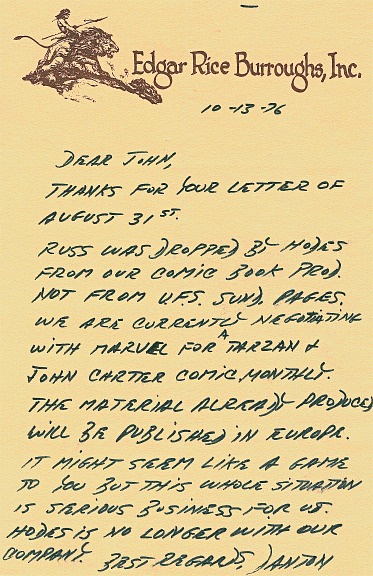 Edgar Rice Burroughs, Inc.
10-13-76
DEAR JOHN,
THANKS FOR YOUR LETTER OF
AUGUST 31ST.
RUSS WAS DROPPED BY HODES
FROM OUR COMIC BOOK PROD.
NOT FROM U.F.S. SUND. PAGES.
WE ARE CURRENTLY NEGOTIATING
WITH MARVEL FOR A TARZAN &
JOHN CARTER COMIC MONTHLY.
THE MATERIAL ALREADY PRODUCED
WILL BE PUBLISHED IN EUROPE.
IT MIGHT SEEM LIKE A GAME
TO YOU BUT THIS WHOLE SITUATION
IS SERIOUS BUSINESS FOR US.
HODES IS NO LONGER WITH OUR
COMPANY. BEST REGARDS, DANTON